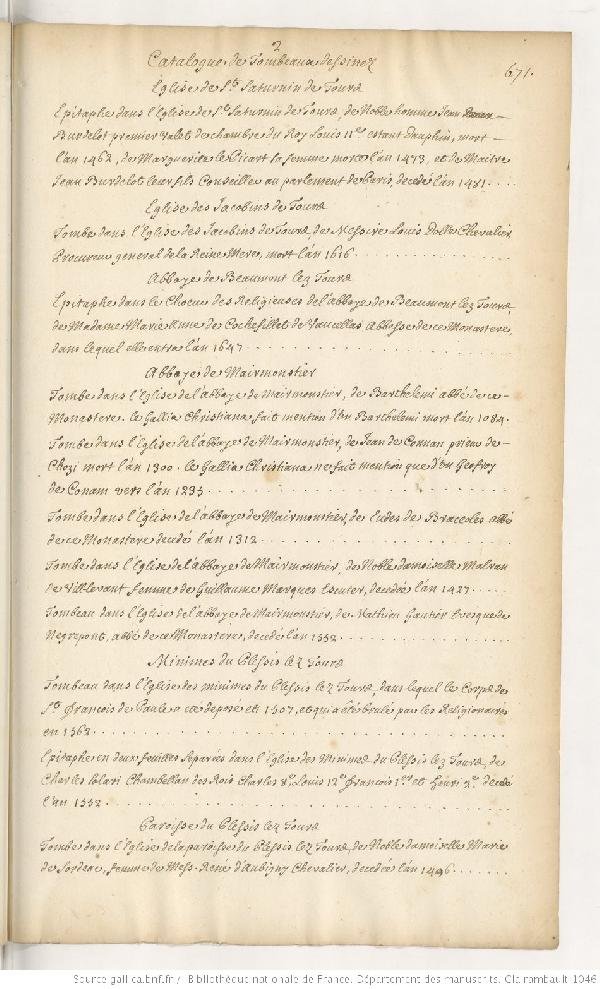 2
Catalogue de Tombeaux dessinez
671.
Eglise de St. Saturnin de Tours
Epitaphe dans l'Eglise de St. Saturnin de Tours, de Noble homme Jean
Burdelot premier valet de chambre du Roy Louis 11e. estant Dauphin, mort
l'an 1462, de Marguerite le Picart sa femme morte l'an 1473, et de Maitre
Jean Burdelot leur fils Conseiller au parlement de Paris, decedé l'an 1481....
Eglise des Jacobins de Tours
Tombe dans l'Eglise des Jacobins de Tours, de Messire Louis Dolle Chevalier
Procureur general de la Reine Mere, mort l'an 1616..........
Abbaye de Beaumont lez Tours
Epitaphe dans le Choeur des Religieuses de l'abbaye de Beaumont lez Tours,
de Madame Marie Anne de Cochefillet de Vaucellas Abbesse de ce Monastere,
dans lequel elle entra l'an 1647..........
Abbaye de Mairmonstier
Tombe dans l'Eglise de l'abbaye de Mairmonstier, de Barthelemi abbé de ce
Monastere. le Gallia Christiana fait mention d'un Barthelemi mort l'an 1084.
Tombe dans l'Eglise de l'abbaye de Mairmonstier, de Jean de Connan prieur de
Chozi mort l'an 1300. le Gallia Christiana ne fait mention que d'un Geofroy
de Conam vers l'an 1235..........
Tombe dans l'Eglise de l'abbaye de Mairmonstier, de Eudes de Braceoles abbé
de ce Monastere decedé l'an 1312..........
Tombe dans l'Eglise de l'abbaye de Mairmonstier, de Noble damoiselle
de Villevant femme de Guillaume Marques Escuier, decedée l'an 1427.....
Tombeau dans l'Eglise de l'abbaye de Mairmonstier, de Mathieu Gautier Evesque de
Negrepont, abbé de ce Monastere, decedé l'an 1552..........
Minimes du Plessis lez Tours
Tombeau dans l'Eglise des minimes du Plessis lez Tours, dans lequel le Corps de
St. François de Paule a eté deposé en 1507, et qui a été brulé par les Religionaires
en 1562..........
Epitaphe en deux feuilles separées dans l'Eglise des Minimes du Plessis lez Tours, de
Charles Chambellan des Rois Charles 8e. Louis 12e. François 1er. et Henri 2e. decedé
l'an 1552..........
Paroisse du Plessis lez Tours
Tombe dans l'Eglise de la paroisse du Plessis lez Tours, de Noble damoiselle Marie
de femme de Mess. René d'Aubigny Chevalier, decedée l'an 1496.......
Source gallica.bnf.fr / Bibliothèque nationale de France. Département des manuscrits. Clairambault 1046